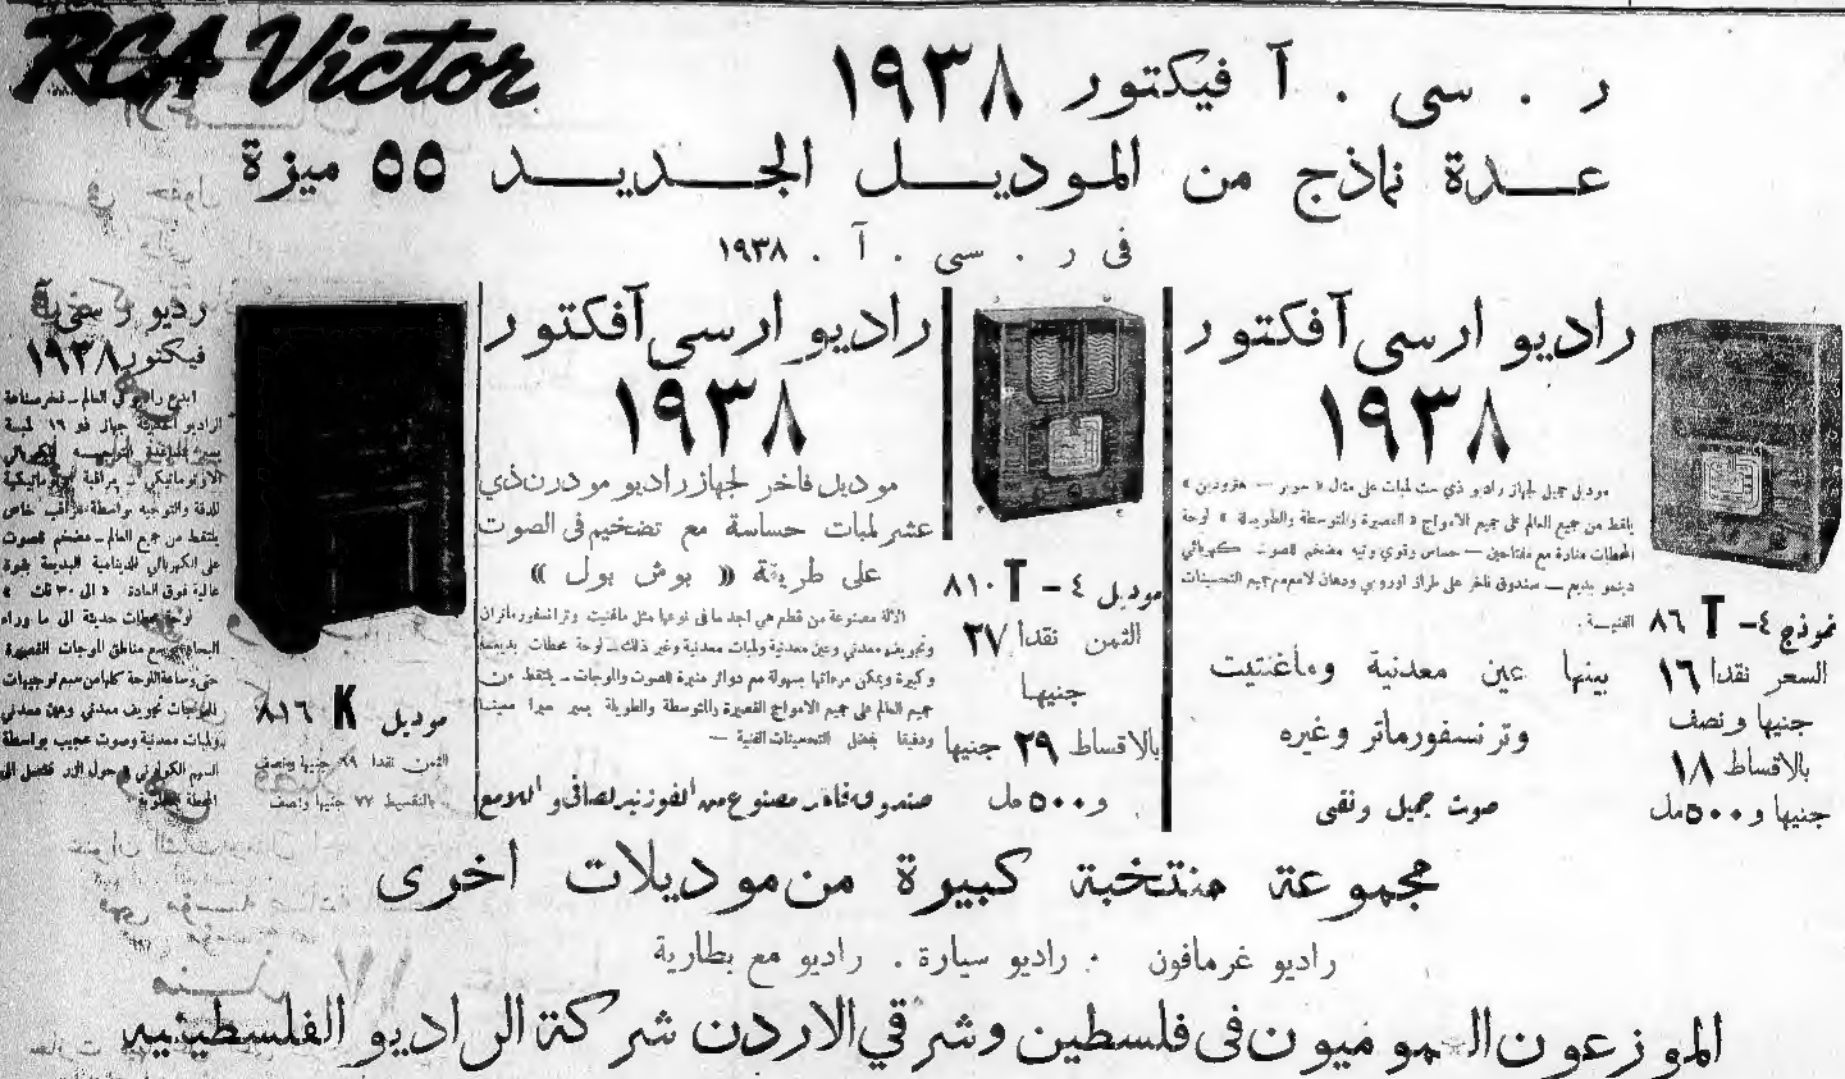 RCA Victor
ر . سي . آ فيكتور ١٩٣٨
عدة نماذج من الموديل الجديد ٥٥ ميزة
في ر . سي . آ . ١٩٣٨
راديو ارسي آفكتور
١٩٣٨
موديل جميل لجهاز راديو ذي ست لمبات على مثال « سوبر — هترودين »
يلقط من جميع العالم على جميع الامواج « القصيرة والمتوسطة والطويلة » لوحة
المحطات منارة مع مفتاحين — حساس وقوي وفيه مضخم للصوت كهربائي
دينمو بديع — صندوق فاخر على طراز اوروبي ودهان لامع مع جميع التحسينات
الفنيـة .
بينها عين معدنية وماغنتيت
وترنسفورماتر وغيره
صوت جميل ونقي
نموذج ٤ – T ٨٦
السعر نقدا ١٦
جنيها ونصف
بالاقساط ١٨
جنيها و ٥٠٠ مل
راديو ارسي آفكتور
١٩٣٨
موديل فاخر لجهاز راديو مودرن ذي
عشر لمبات حساسة مع تضخيم في الصوت
على طريقة « بوش بول »
الآلة مصنوعة من قطع هي اجد ما في نوعها مثل ماغنيت وترانسفورماتران
وتجويف معدني وعين معدنية ولمبات معدنية وغير ذلك – لوحة محطات بديعة
وكبيرة ويمكن مرءاتها بسهولة مع دوائر منيرة للصوت والموجات – يلتقط من
جميع العالم على جميع الامواج القصيرة والمتوسطة والطويلة يسير سيرا معينا
ودقيقا بفضل التحسينات الفنية —
صندوق فاخر مصنوع من الفوزنير الصافي و اللامع
موديل ٤ – T ٨١٠
الثمن نقدا ٢٧
جنيها
بالاقساط ٢٩ جنيها
و ٥٠٠ مل
راديو ر سي آ
فيكتور ١٩٣٨
ابدع راديو في العالم – فخر صناعة
الراديو الحديثة جهاز ذو ١٦ لمبة
الاوتوماتيكي – مراقبة اوتوماتيكية
للدقة والتوجيه بواسطة مراقب خاص
يلتقط من جميع العالم – مضخم للصوت
على الكهربائي الدينامية البديعة بقوة
عالية فوق العادة « الى ٣٠ ثات »
لوحة محطات حديثة الى ما وراء
البحار مع مناطق للموجات القصيرة
حتى وساعة اللوحة كلها من سبع توجيهات
للموجات تجويف معدني وعين معدني
ولمبات معدنية وصوت عجيب بواسطة
حول الزر فتصل الى
المحطة المطلوبة
موديل K ٨١٦
الثمن نقدا ٦٩ جنيها ونصف
بالتقسيط ٧٧ جنيها ونصف
مجموعة منتخبة كبيرة من موديلات اخرى
راديو غرمافون . راديو سيارة . راديو مع بطارية
الموزعون العموميون في فلسطين وشرقي الاردن شركة الراديو الفلسطينيه